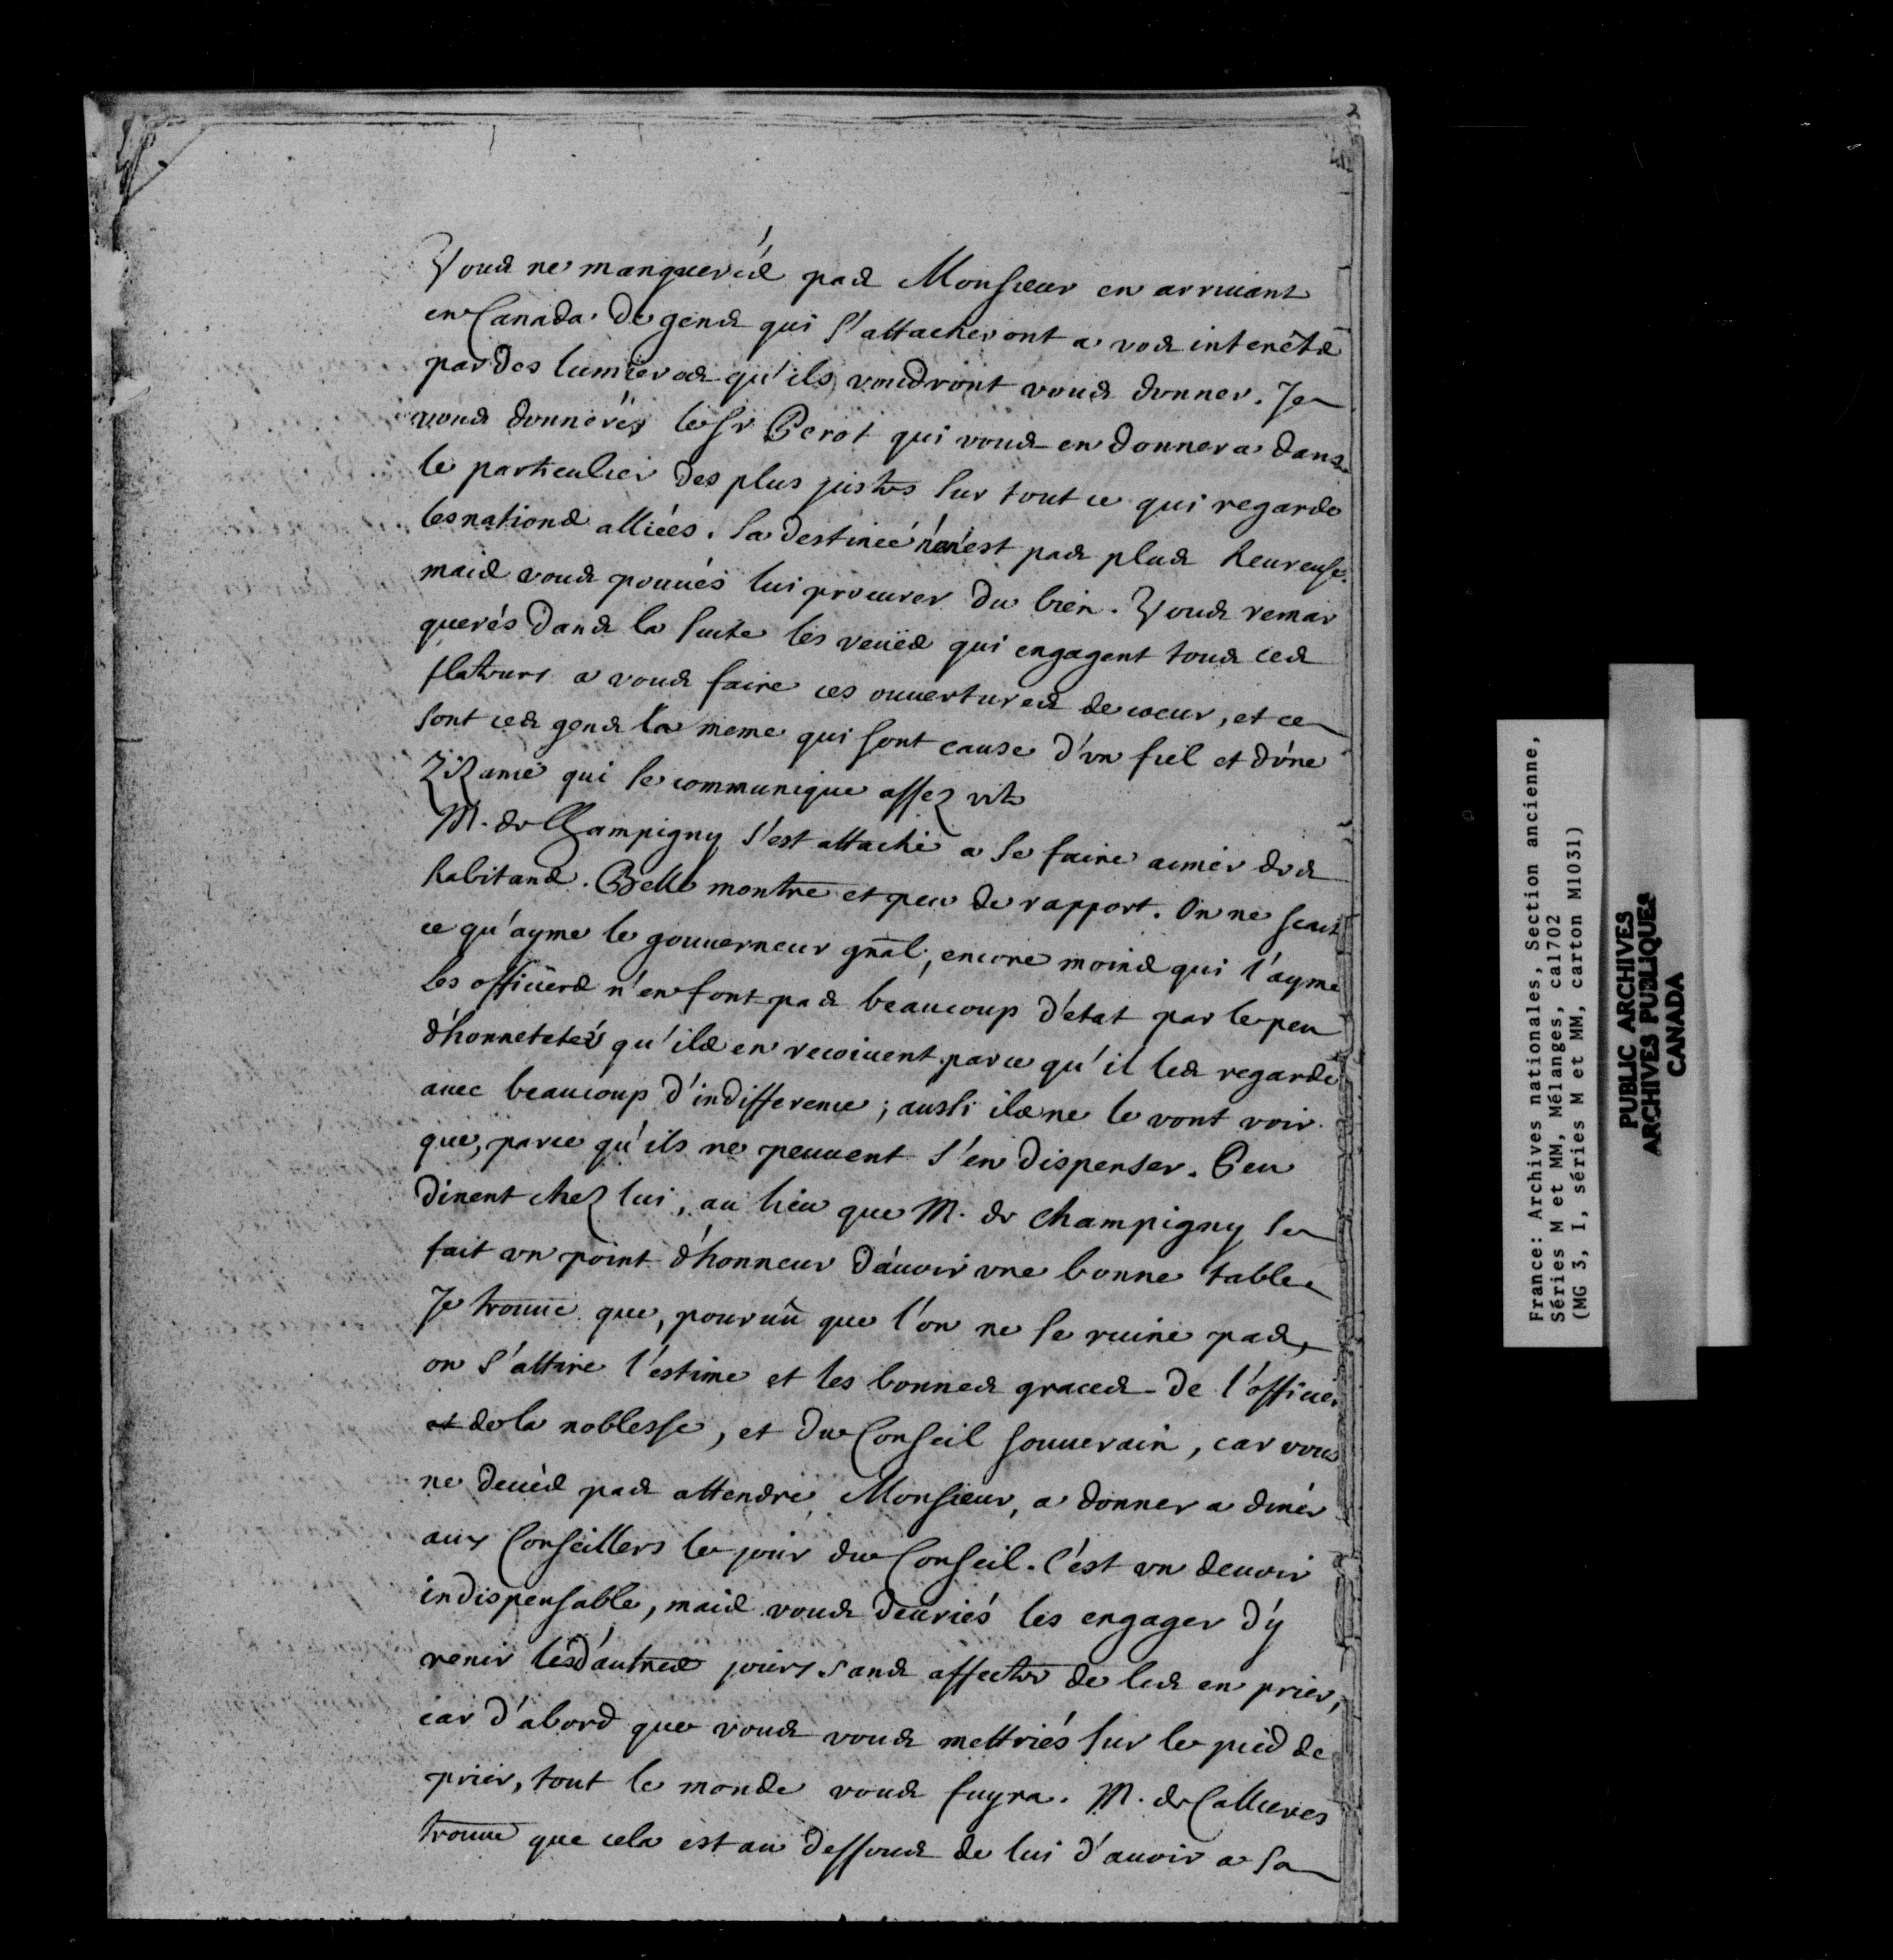 2
Vous ne manquerés pas Monsieur en arriuant
en Canada de gens qui s'attacheront a vos interêts
par des lumieres qu'ils voudront vous donner. Je
vous donnerés le Sr Perot qui vous en donnera dans
le particulier des plus justes sur tout ce qui regarde
les nations alliées. Sa destinée n'en est pas plus heureuse.
mais vous pouués lui procurer du bien. Vous remar
querés dans la suite les veuës qui engagent tous ces
flateurs a vous faire ces ouuertures de coeur, et ce
sont ces gens la meme qui sont cause d'vn fiel et d'vne
Zizanie qui se communique assez vite
M. de Champigny s'est attaché a se faire aimer des
habitans. Belle montre et peu de rapport. On ne scait
ce qu'ayme le gouuerneur gnãl, encore moins qui l'ayme
les officiers n'en font pas beaucoup d'etat par le peu
d'honnetetés qu'ils en recoiuent parce qu'il les regarde
auec beaucoup d'indifference; aussi ils ne le vont voir
que, parce qu'ils ne peuuent s'en dispenser. Peu
dinent chez lui, au lieu que M. de Champigny se
fait vn point d'honneur d'auoir vne bonne table
Je trouue que, pouruû que l'on ne se ruine pas,
on s'attire l'estime et les bonnes graces de l'officier
et de la noblesse, et du Conseil souuerain, car vous
ne deués pas attendre, Monsieur, a donner a diner
aux Conseillers le jour du Conseil. C'est vn deuoir
indispensable, mais vous deuriés les engager d'y
venir les d'autres jours sans affecter de les en prier,
car d'abord que vous vous mettriés sur le pied de
prier, tout le monde vous fuyra. M. de Callieres
trouue que cela est au dessous de lui d'auoir a sa
France: Archives nationales, Section ancienne,
Séries M et MM, Mélanges, ca1702
(MG 3, I, séries M et MM, carton M1031)
PUBLIC ARCHIVES
ARCHIVES PUBLIQUES
CANADA